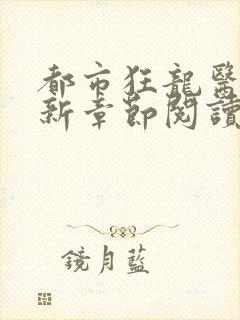 都市狂龍醫
新章節閱讀
鏡月藍